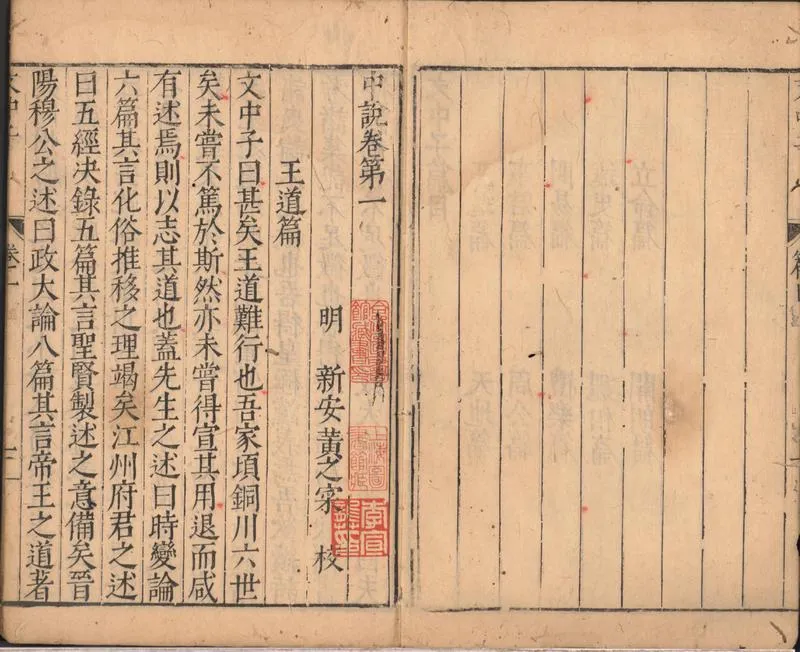 中說卷第一
明 新安黃之寀 校
上海圖書館藏
李宣龔印
王道篇
文中子曰甚矣王道難行也吾家頃銅川六世
矣未嘗不篤於斯然亦未嘗得宣其用退而咸
有述焉則以志其道也蓋先生之述曰時變論
六篇其言化俗推移之理竭矣江州府君之述
曰五經決錄五篇其言聖賢製述之意備矣晉
陽穆公之述曰政大論八篇其言帝王之道著